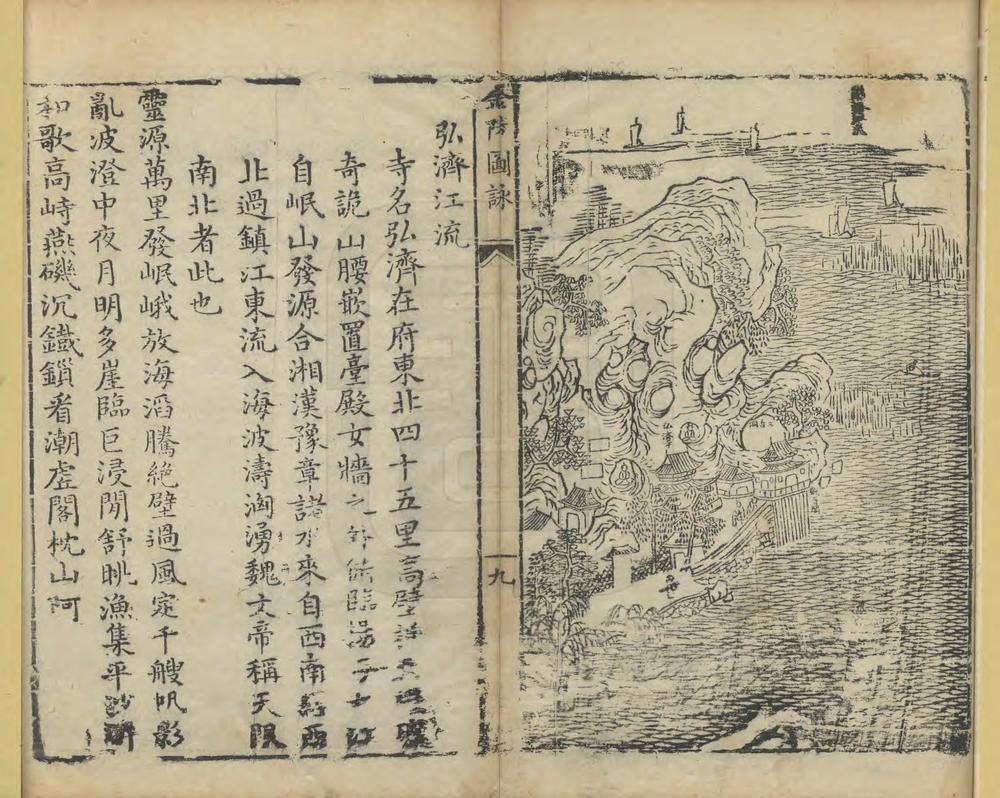 金陵圖詠
九
弘濟江流
寺名弘濟在府東北四十五里高壁
奇詭山腰嵌置臺殿女牆之外俯臨揚子大江
自岷山發源合湘漢豫章諸水來自西南經西
北過鎮江東流入海波濤洶湧魏文帝稱天限
南北者此也
靈源萬里發岷峨放海滔騰絕壁過風定千艘帆影
亂波澄中夜月明多崖臨巨浸閒舒眺漁集平沙
和歌高峙燕磯沉鐵鎖看潮虛閣枕山阿